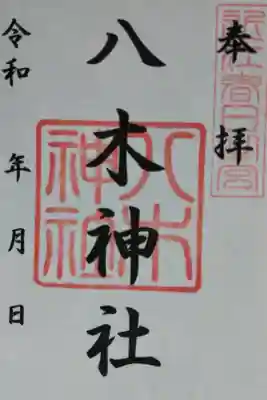 奉拝
八木神社
八木神社
令和 年 月 日